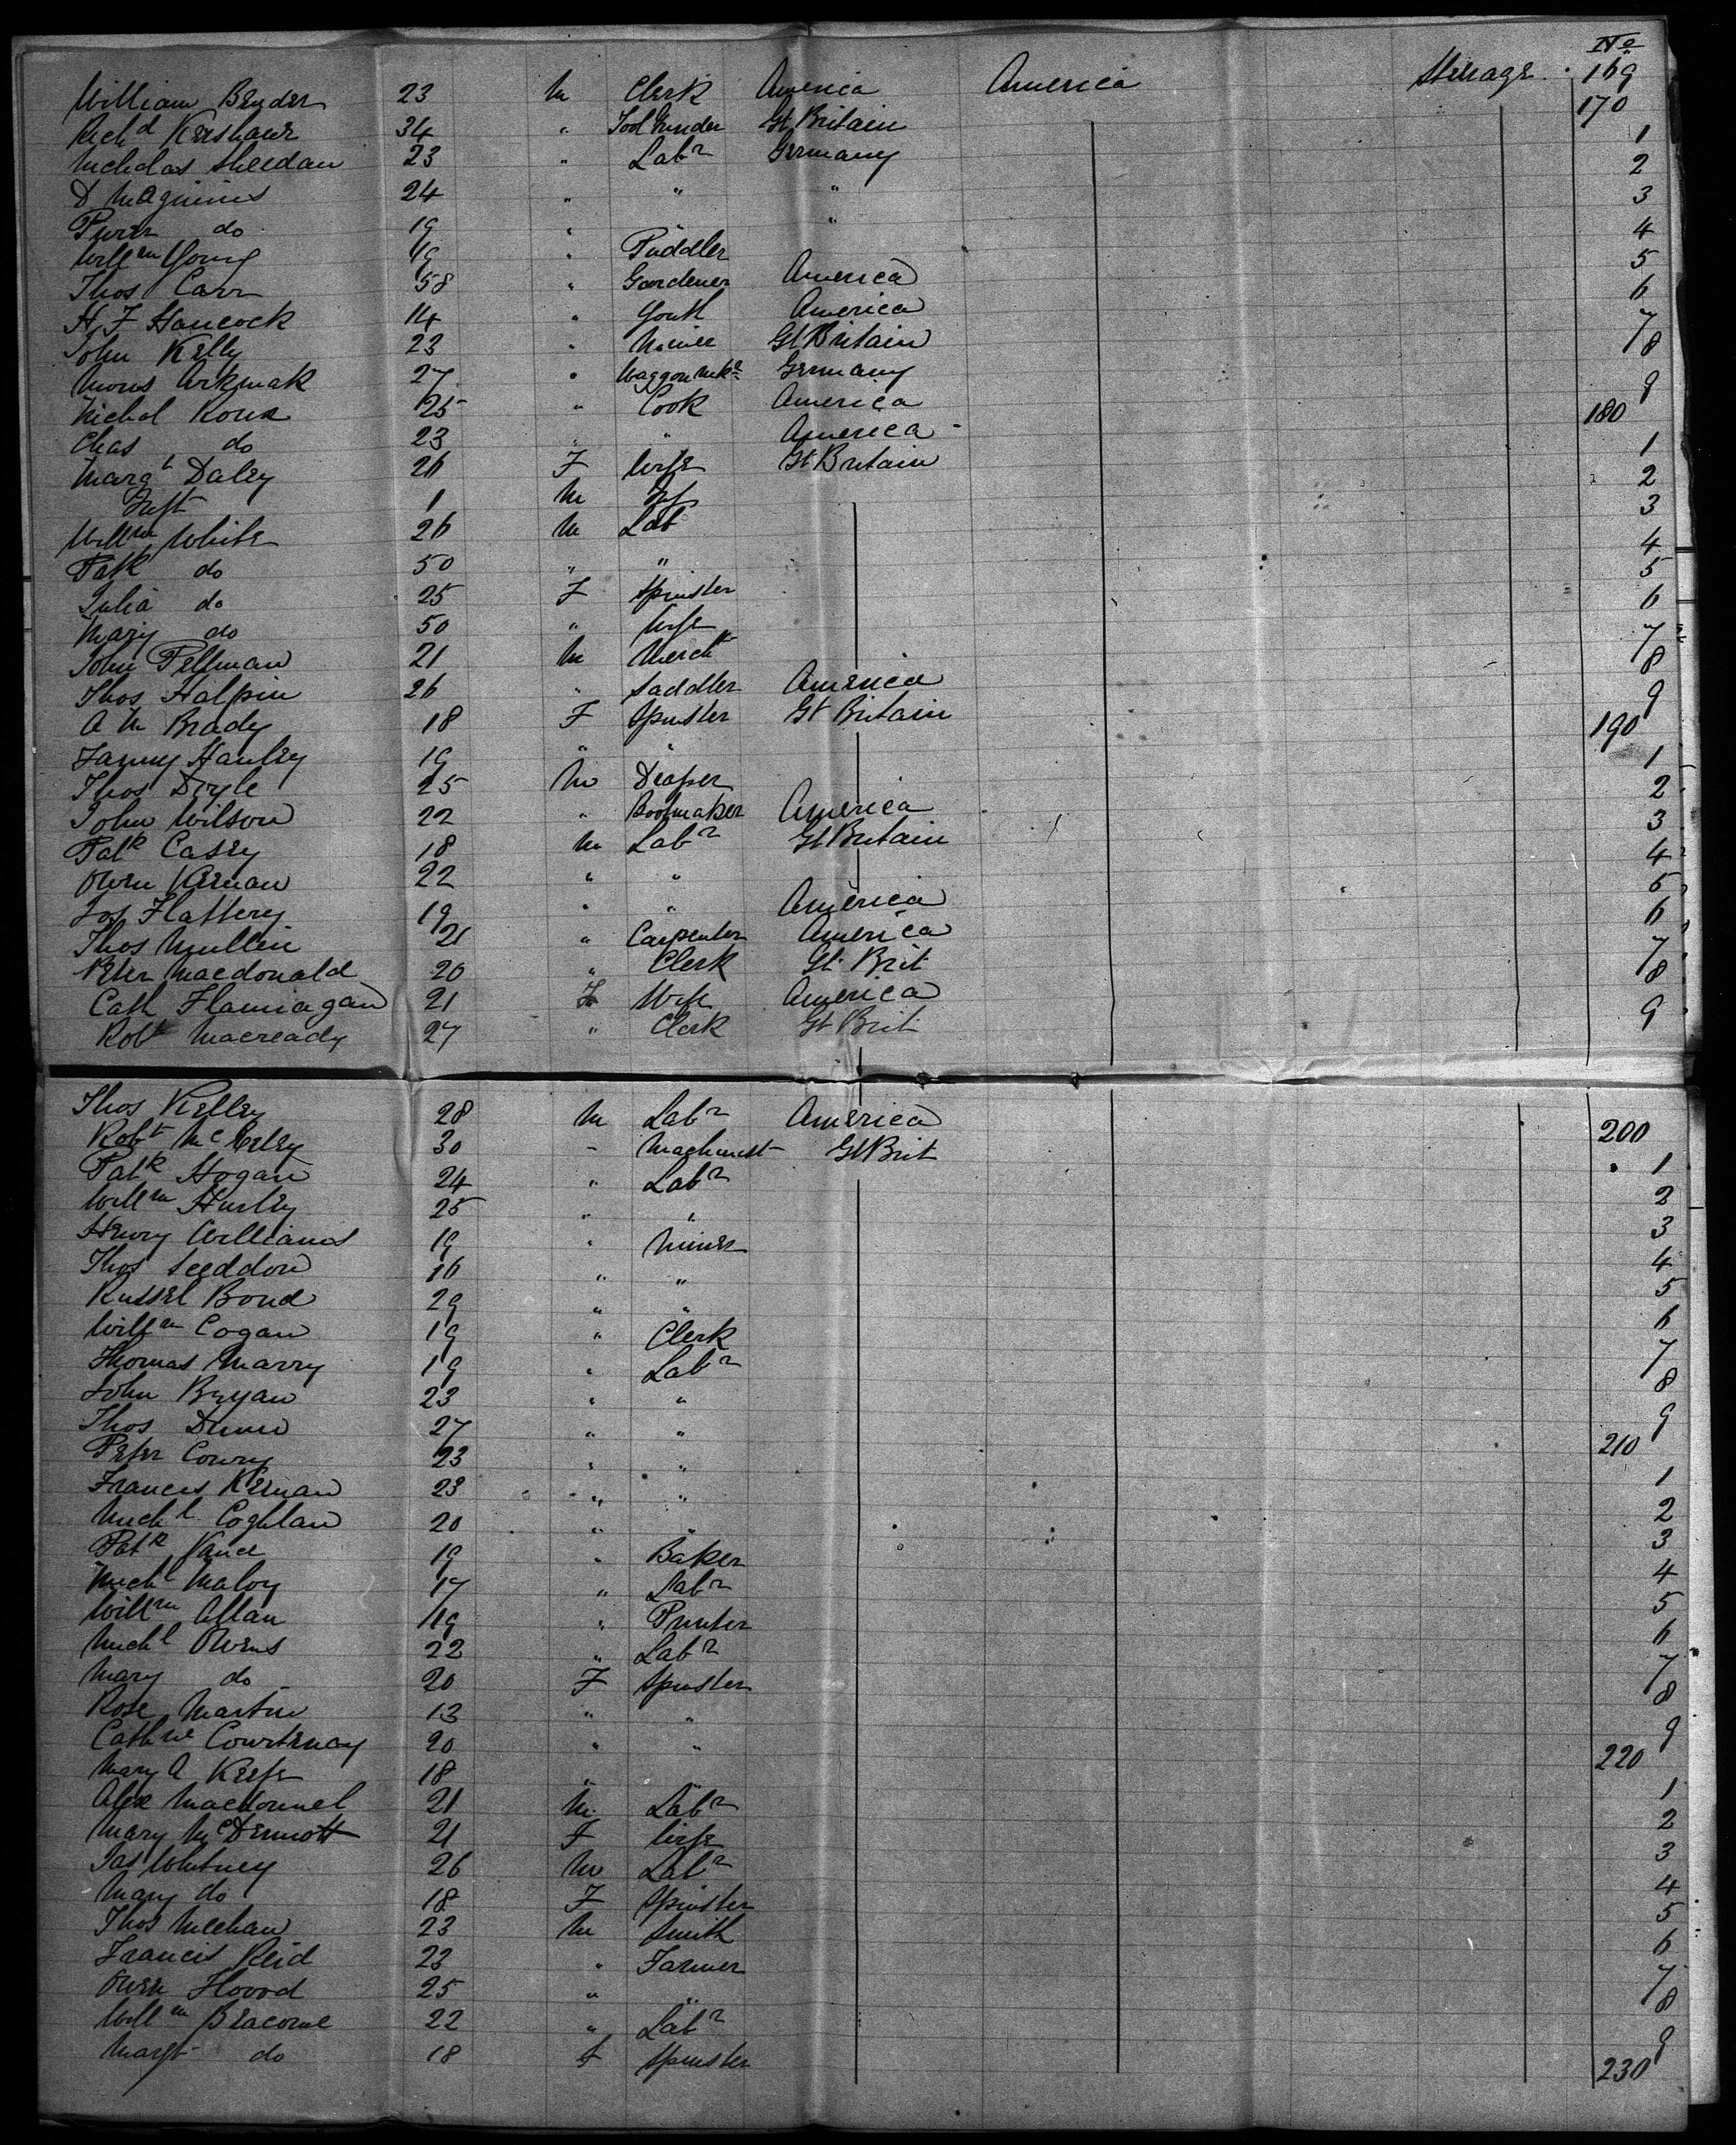 No
William Bender 23 m Clerk America America Steerage 169
Richd Kershaw 34 " Tool Grinder Gt Britain 170
Nicholas Sheedan 23 " Labr Germany 1
D Maginnis 24 " " " 2
Peter do 19 " " 3
Willm Young 19 " Puddler 4
Thos Carr 58 " Gardener America 5
H. F Hancock 14 " Youth America 6
John Kelly 23 " Miner Gt Britain 7
Morris 27 " Waggon Mkr Germany 8
Michol 25 " Cook America 9
Chas do 23 " " America 180
Margt Daley 26 F Wife Gt Britain 1
Inft 1 m Inf 2
Willm White 26 m Lab 3
Patk do 50 " " 4
Julia do 25 F Spinster 5
Mary do 50 " Wife 6
John Pellman 21 m Mercht 7
Thos Halpin 26 " Saddler America 8
A M Brady 18 F Spinster Gt Britain 9
Fanny Hanley 19 " " 190
Thos Doyle 25 m Draper 1
John Wilson 22 " Bootmaker America 2
Patk Casey 18 m Labr Gt Britain 3
Owen Kernan 22 " " 4
Jos Flattery 19 " " America 5
Thos Mullin 21 " Carpenter America 6
Peter Macdonald 20 " Clerk Gt Brit 7
Cath Flannagan 21 F Wife America 8
Robt Macready 27 " Clerk Gt Brit 9
Thos Kelley 28 m Labr America 200
Robt 30 " Machinist Gt Brit 1
Patk Hogan 24 " Labr 2
Willm Hurley 25 " " 3
Henry Williams 19 " Miner 4
Thos Seeddon 16 " " 5
Russel Bond 29 " " 6
Willm Cogan 19 " Clerk 7
Thomas Marry 19 " Labr 8
John Bryan 23 " " 9
Thos Dunn 27 " " 210
Peter Cowry 23 " " 1
Francis Kernan 23 " " 2
Michl Coghlan 20 " " 3
Patk Vance 19 " Baker 4
Michl Maloy 17 " Labr 5
Willm Allan 19 " Printer 6
Michl Owens 22 " Labr 7
Mary do 20 F Spinster 8
Rose Martin 13 " " 9
Cathne Courtenay 20 " " 220
Mary A Keefe 18 " " 1
Alex Macdonnel 21 m Labr 2
Mary McDermott 21 F Wife 3
Jas Whitney 26 m Labr 4
Mary do 18 F Spinster 5
Thos Meehan 23 m Smith 6
Francis Reid 23 " Farmer 7
Owen Flood 25 " " 8
Willm Beacome 22 " Labr 9
Margt do 18 f Spinster 230